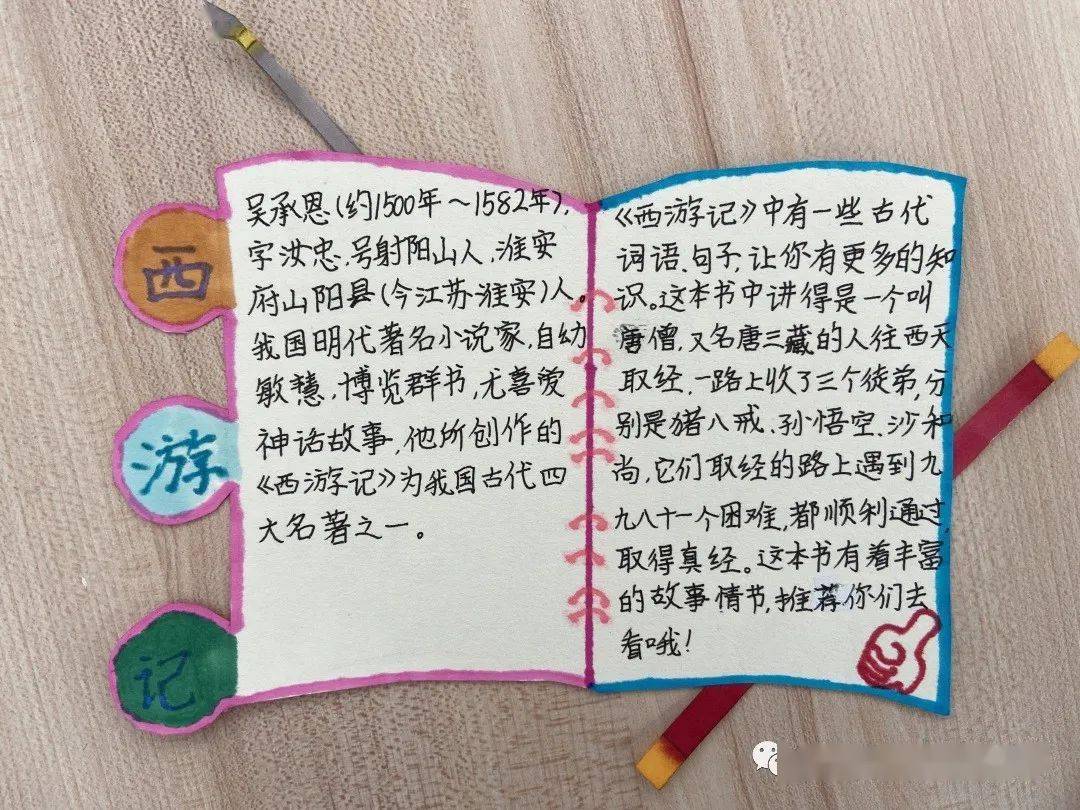 西
游
记
吴承恩(约1500年～1582年),
字汝忠,号射阳山人,淮安
府山阳县(今江苏淮安)人。
我国明代著名小说家,自幼
敏慧,博览群书,尤喜爱
神话故事,他所创作的
《西游记》为我国古代四
大名著之一。
《西游记》中有一些古代
词语、句子,让你有更多的知
识。这本书中讲得是一个叫
唐僧,又名唐三藏的人往西天
取经,一路上收了三个徒弟,分
别是猪八戒、孙悟空、沙和
尚,它们取经的路上遇到九
九八十一个困难,都顺利通过,
取得真经。这本书有着丰富
的故事情节,推荐你们去
看哦!